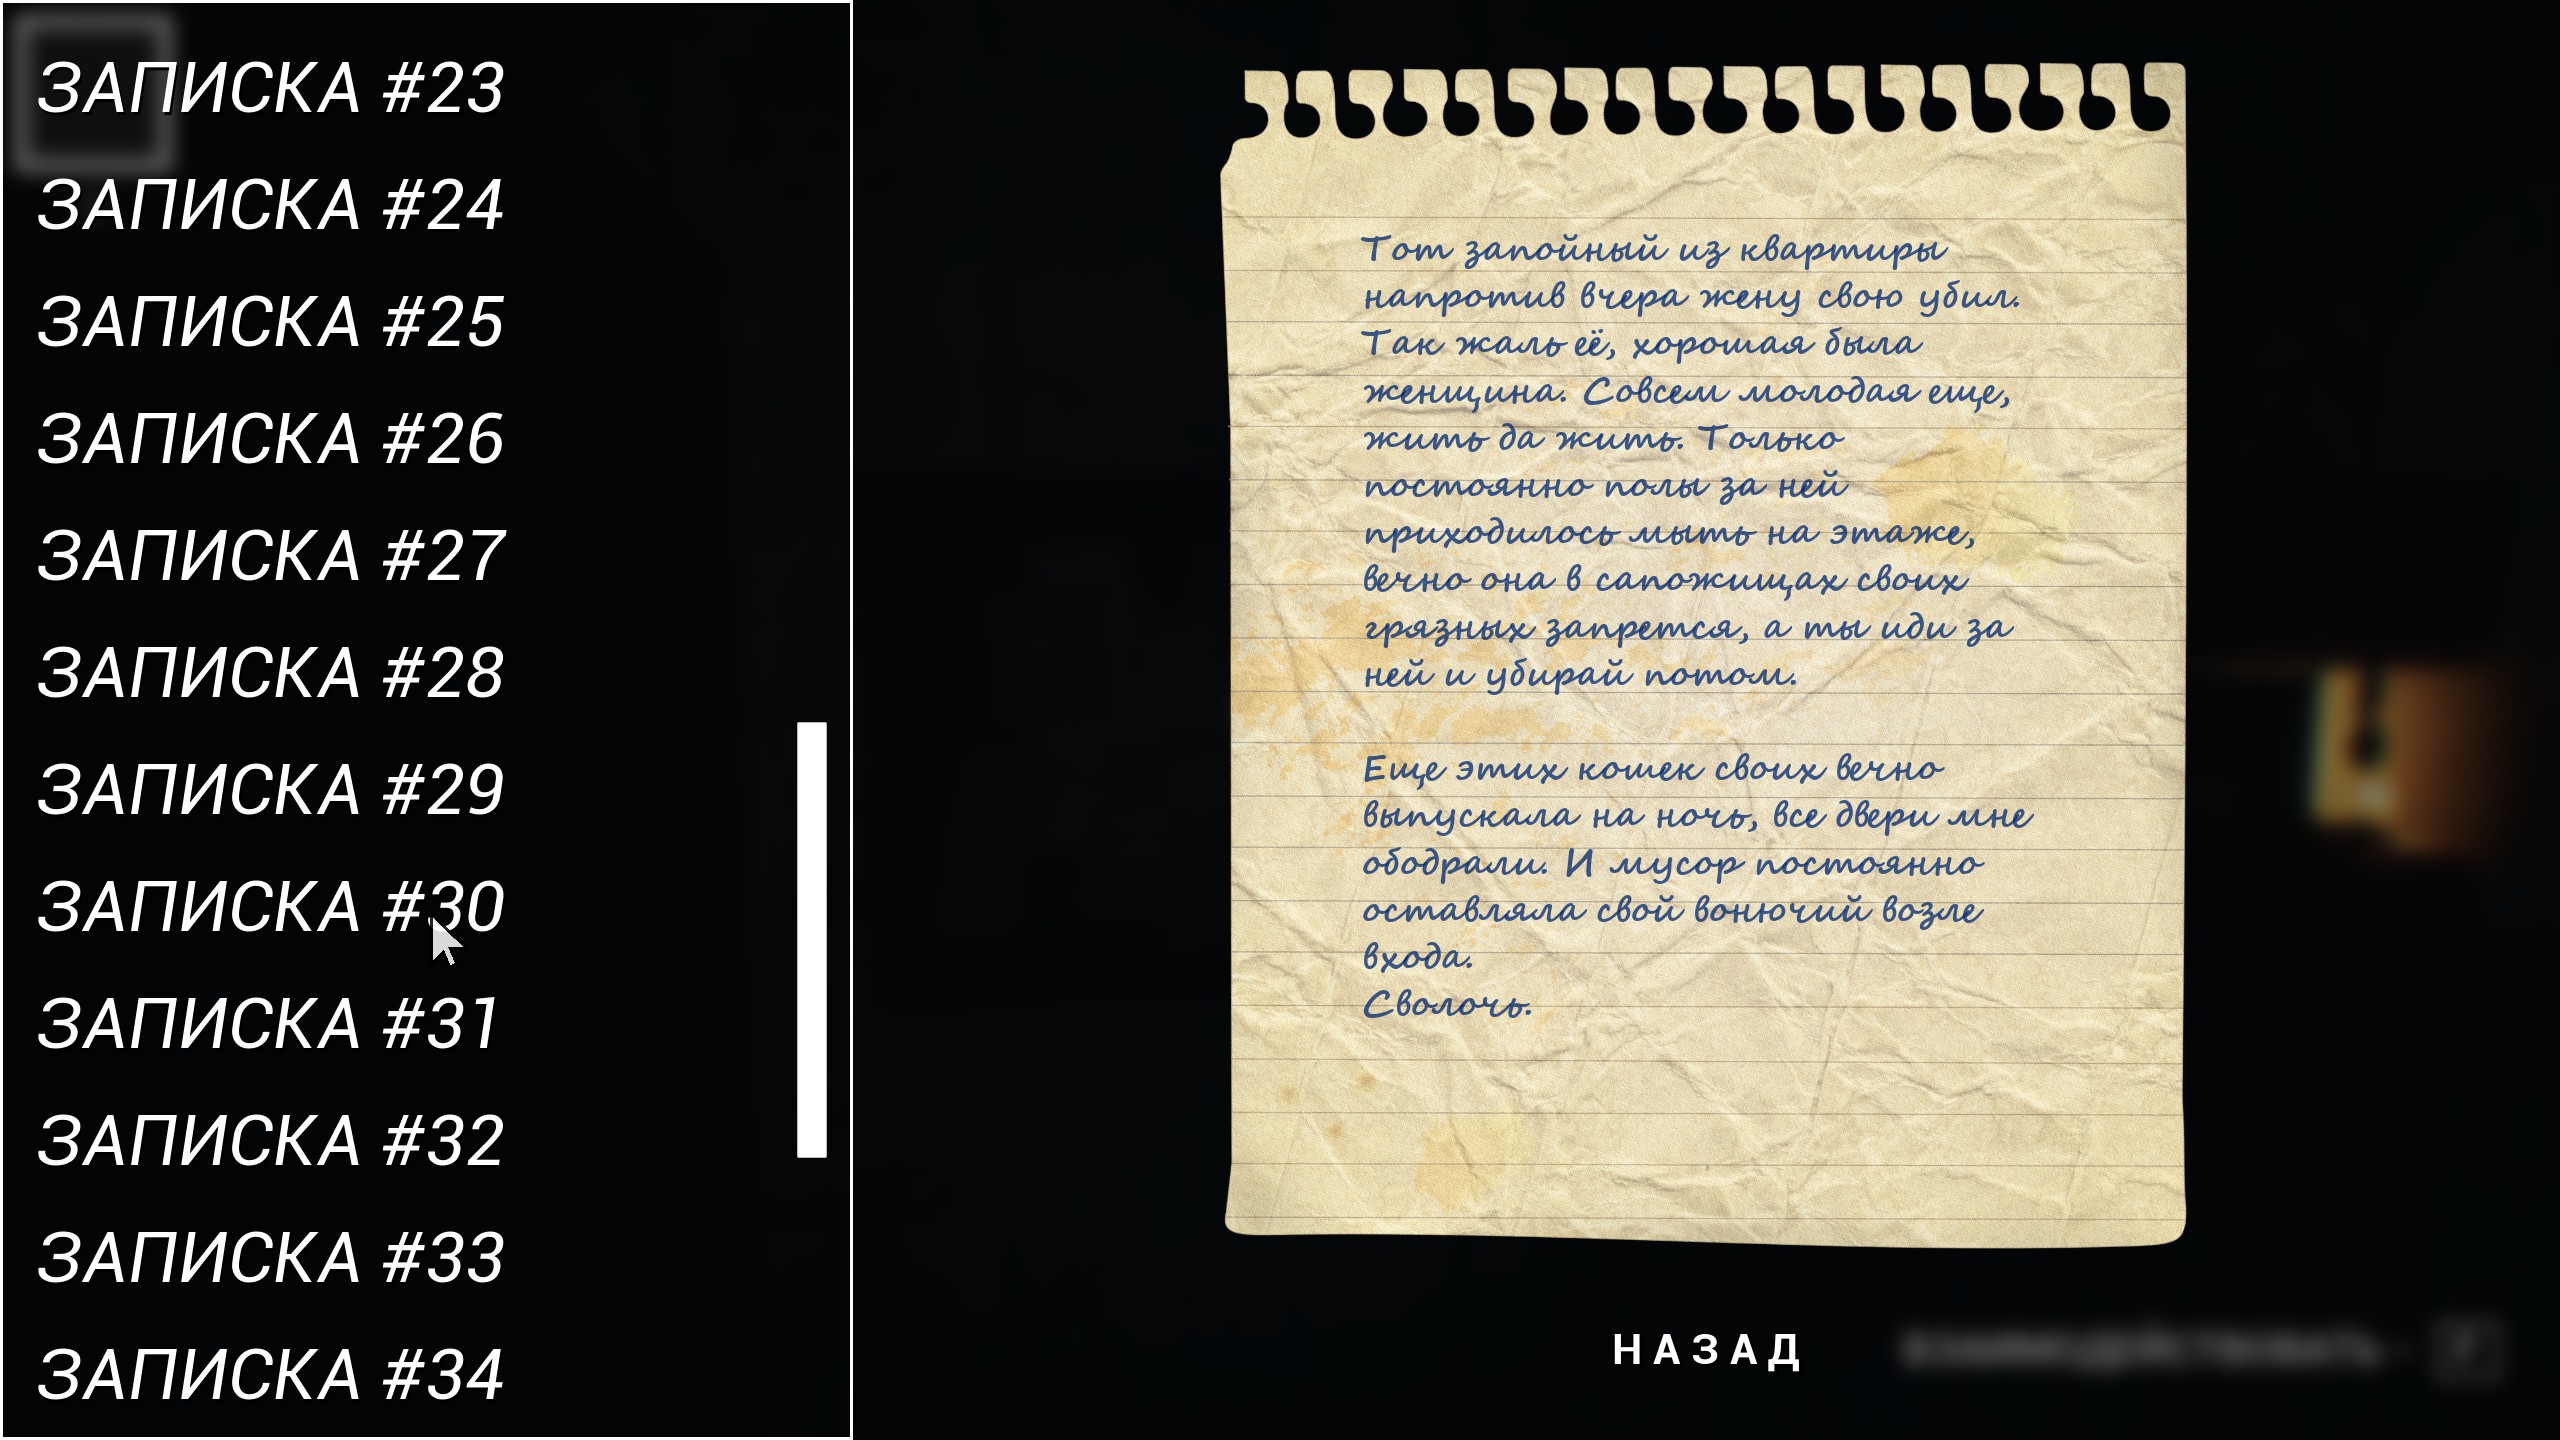 ЗАПИСКА #23
ЗАПИСКА #24
ЗАПИСКА #25
ЗАПИСКА #26
ЗАПИСКА #27
ЗАПИСКА #28
ЗАПИСКА #29
ЗАПИСКА #30
ЗАПИСКА #31
ЗАПИСКА #32
ЗАПИСКА #33
ЗАПИСКА #34
Тот запойный из квартиры
напротив вчера жену свою убил.
Так жаль её, хорошая была
женщина. Совсем молодая еще,
жить да жить. Только
постоянно полы за ней
приходилось мыть на этаже,
вечно она в сапожищах своих
грязных запрется, а ты иди за
ней и убирай потом.
Еще этих кошек своих вечно
выпускала на ночь, все двери мне
ободрали. И мусор постоянно
оставляла свой вонючий возле
входа.
Сволочь.
НАЗАД